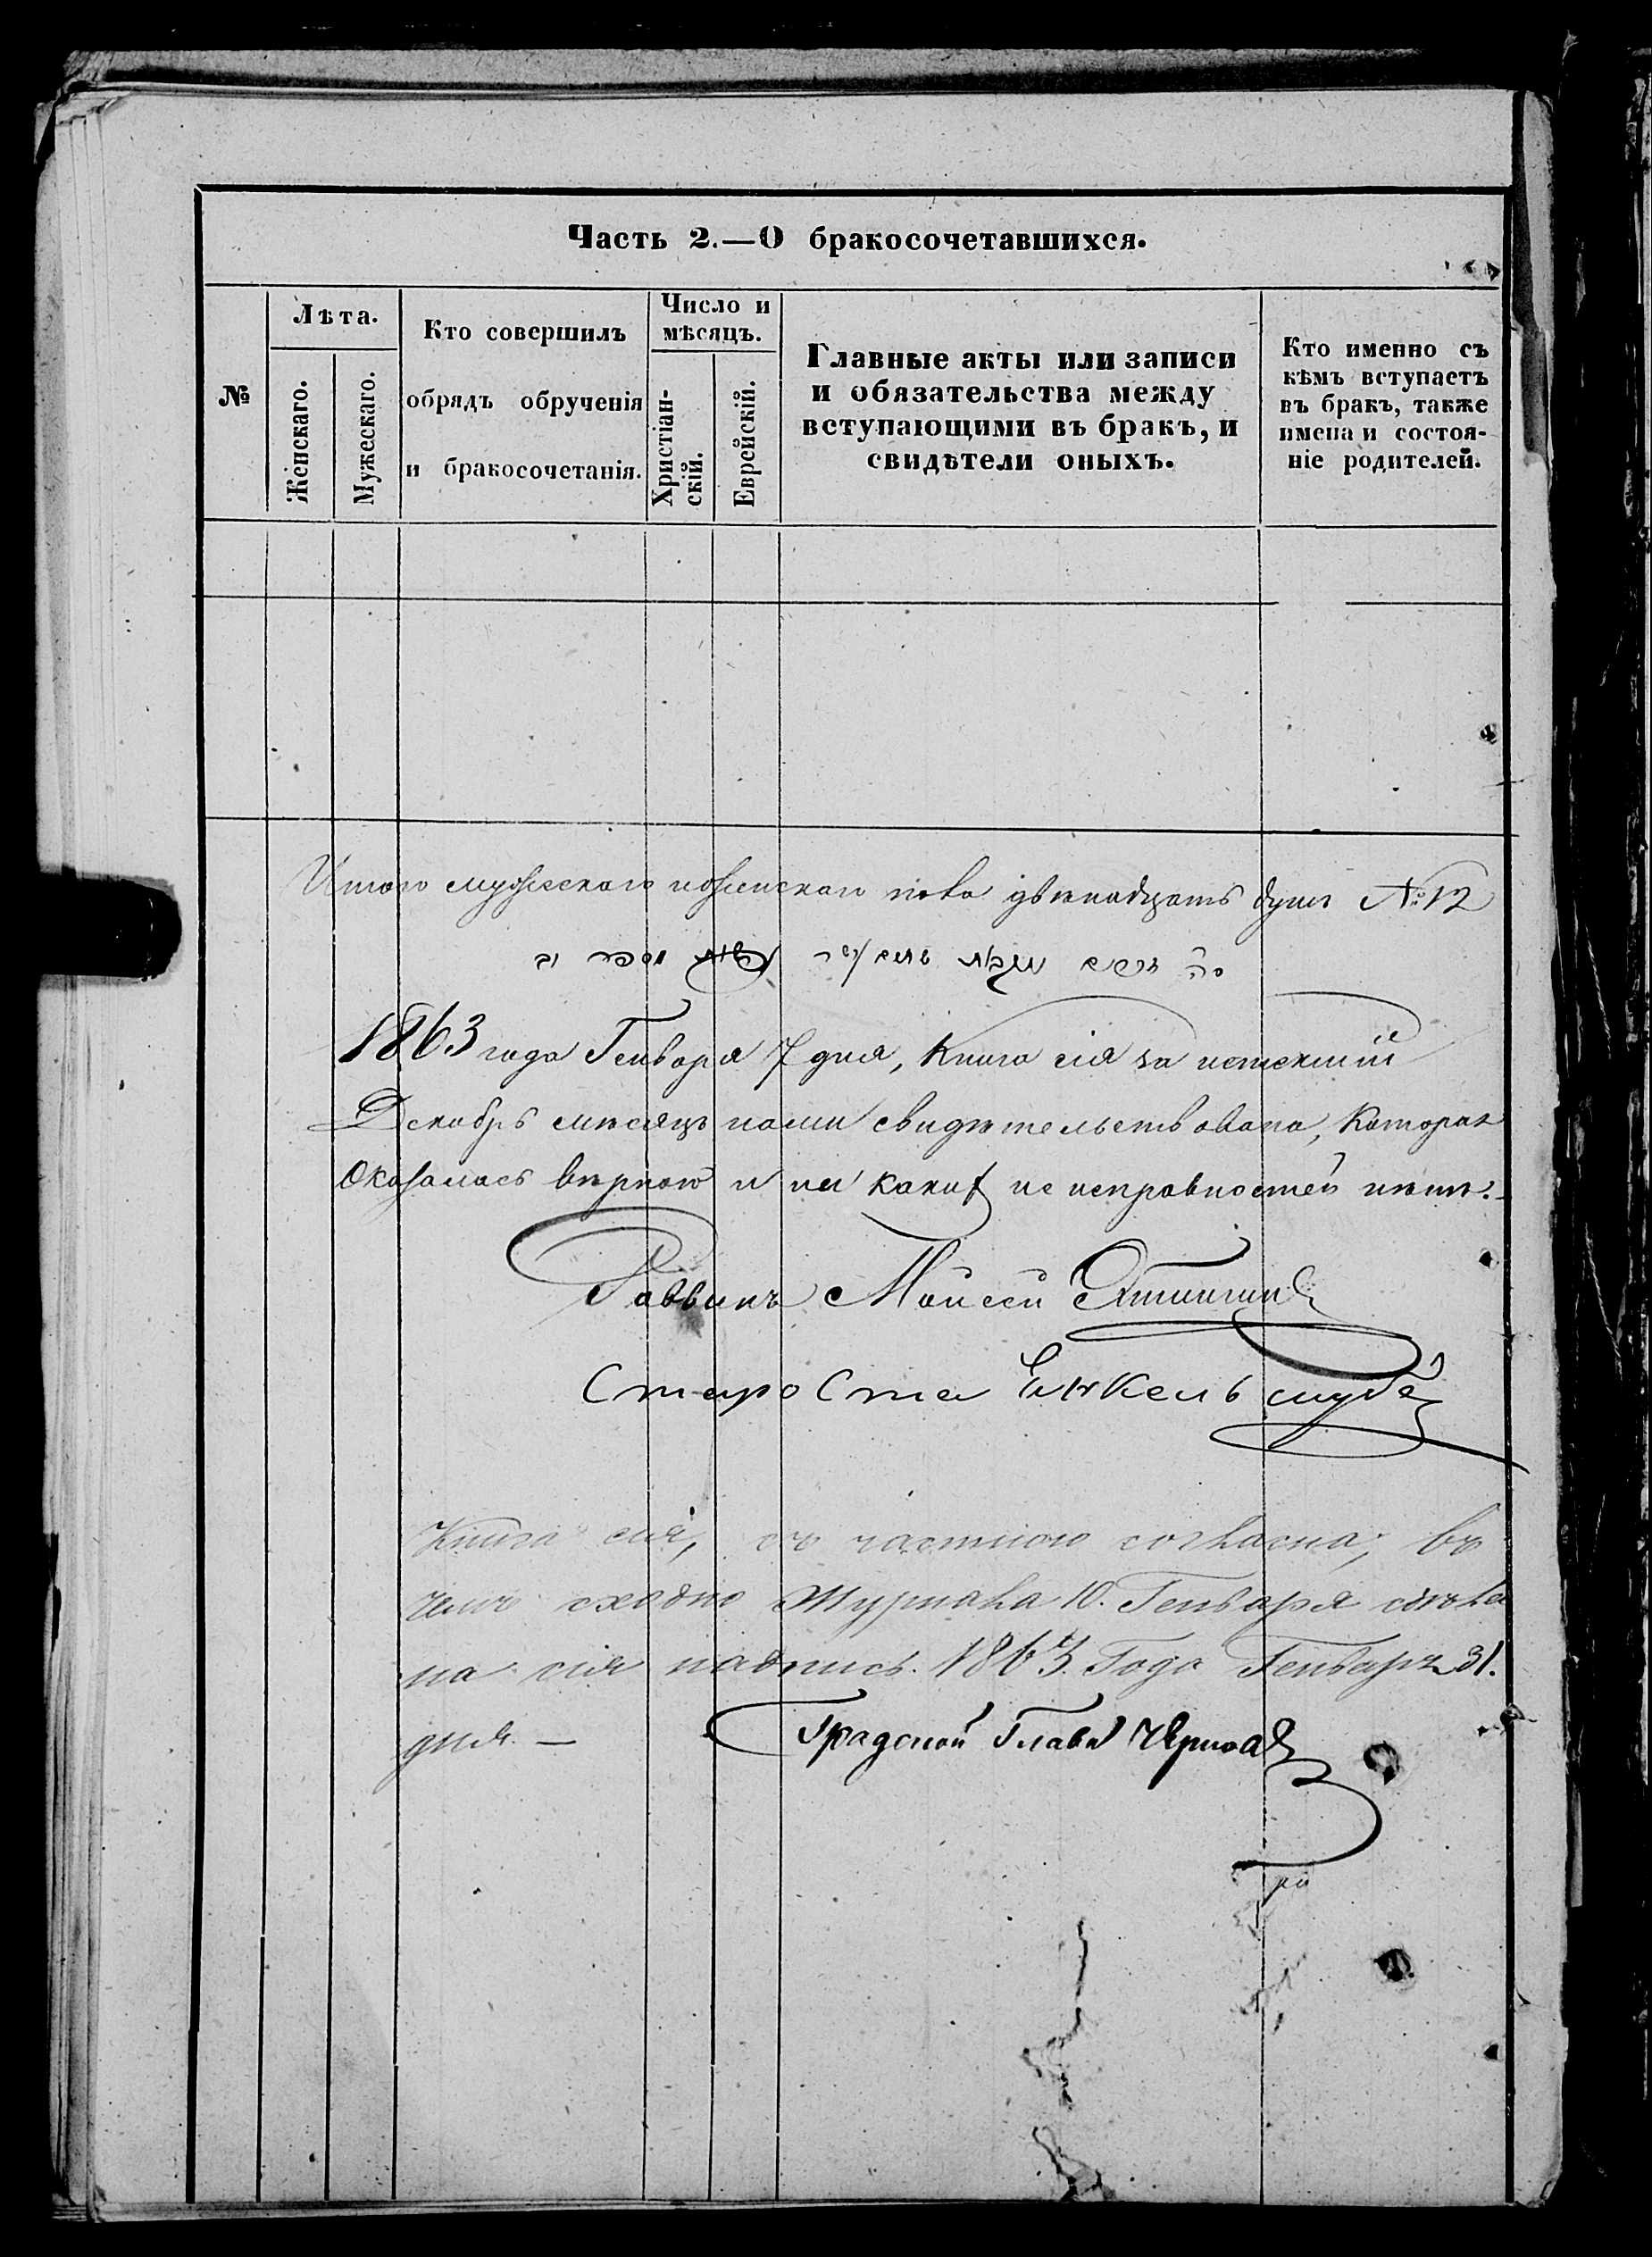 Часть 2.—О бракосочетавшихся.
№
Лѣта.
Женскаго.
Мужескаго.
Кто совершилъ
обрядъ обрученія
и бракосочетанія.
Число и
мѣсяцъ.
Христіан-
скій.
Еврейскій.
Главные акты или записи
и обязательства между
вступающими въ бракъ, и
свидѣтели оныхъ.
Кто именно съ
кѣмъ вступаетъ
въ бракъ, также
имена и состоя-
ніе родителей.
Итого мужескаго и женскаго пола двѣнадцать душъ №12
1863 года Генваря 7 дня, Книга сія за истекшій
Декабрь мѣсяцъ нами свидѣтельствована, которая
Оказалась вѣрною и ни каких не исправностей нѣтъ.
Раввинъ Мойсей
Староста
Книга сія, съ частною согласна, въ
чемъ сходно Журнала 10. Генваря сдѣла
на сія надпись. 1863. Года Генваря 31.
дня. —
Градской Глава